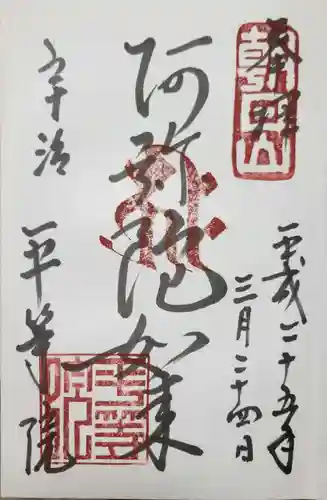 奉拝
朝日山
平成二十五年
三月二十四日
阿弥陀如来
宇治 平等院
平等院